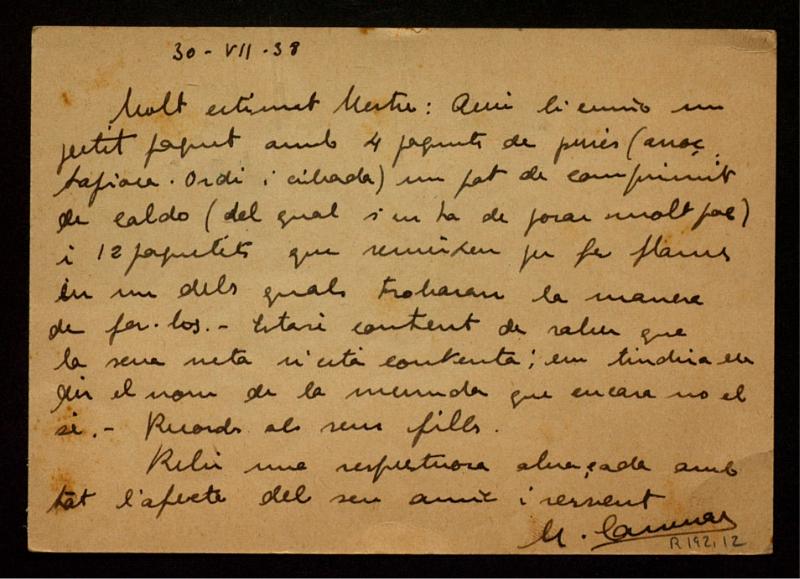 30 - VII - 38
Molt estimat Mestre: Aquí li envio un
petit paquet amb 4 paquets de purés (arroç,
tapioca. Ordi i cibada) un pot de comprimit
de caldo (del qual s'en ha de posar molt poc)
i 12 paquetets que serveixen per fer flams
en un dels quals trobaran la manera
de fer-los. - Estaré content de saber que
la seva neta n'està contenta; em tindria en
dir el nom de la menuda que encara no el
sé. - Records als seus fills.
Rebi una respectuosa abraçada amb
tot l'afecte del seu amic i servent
M.
R 192, 12